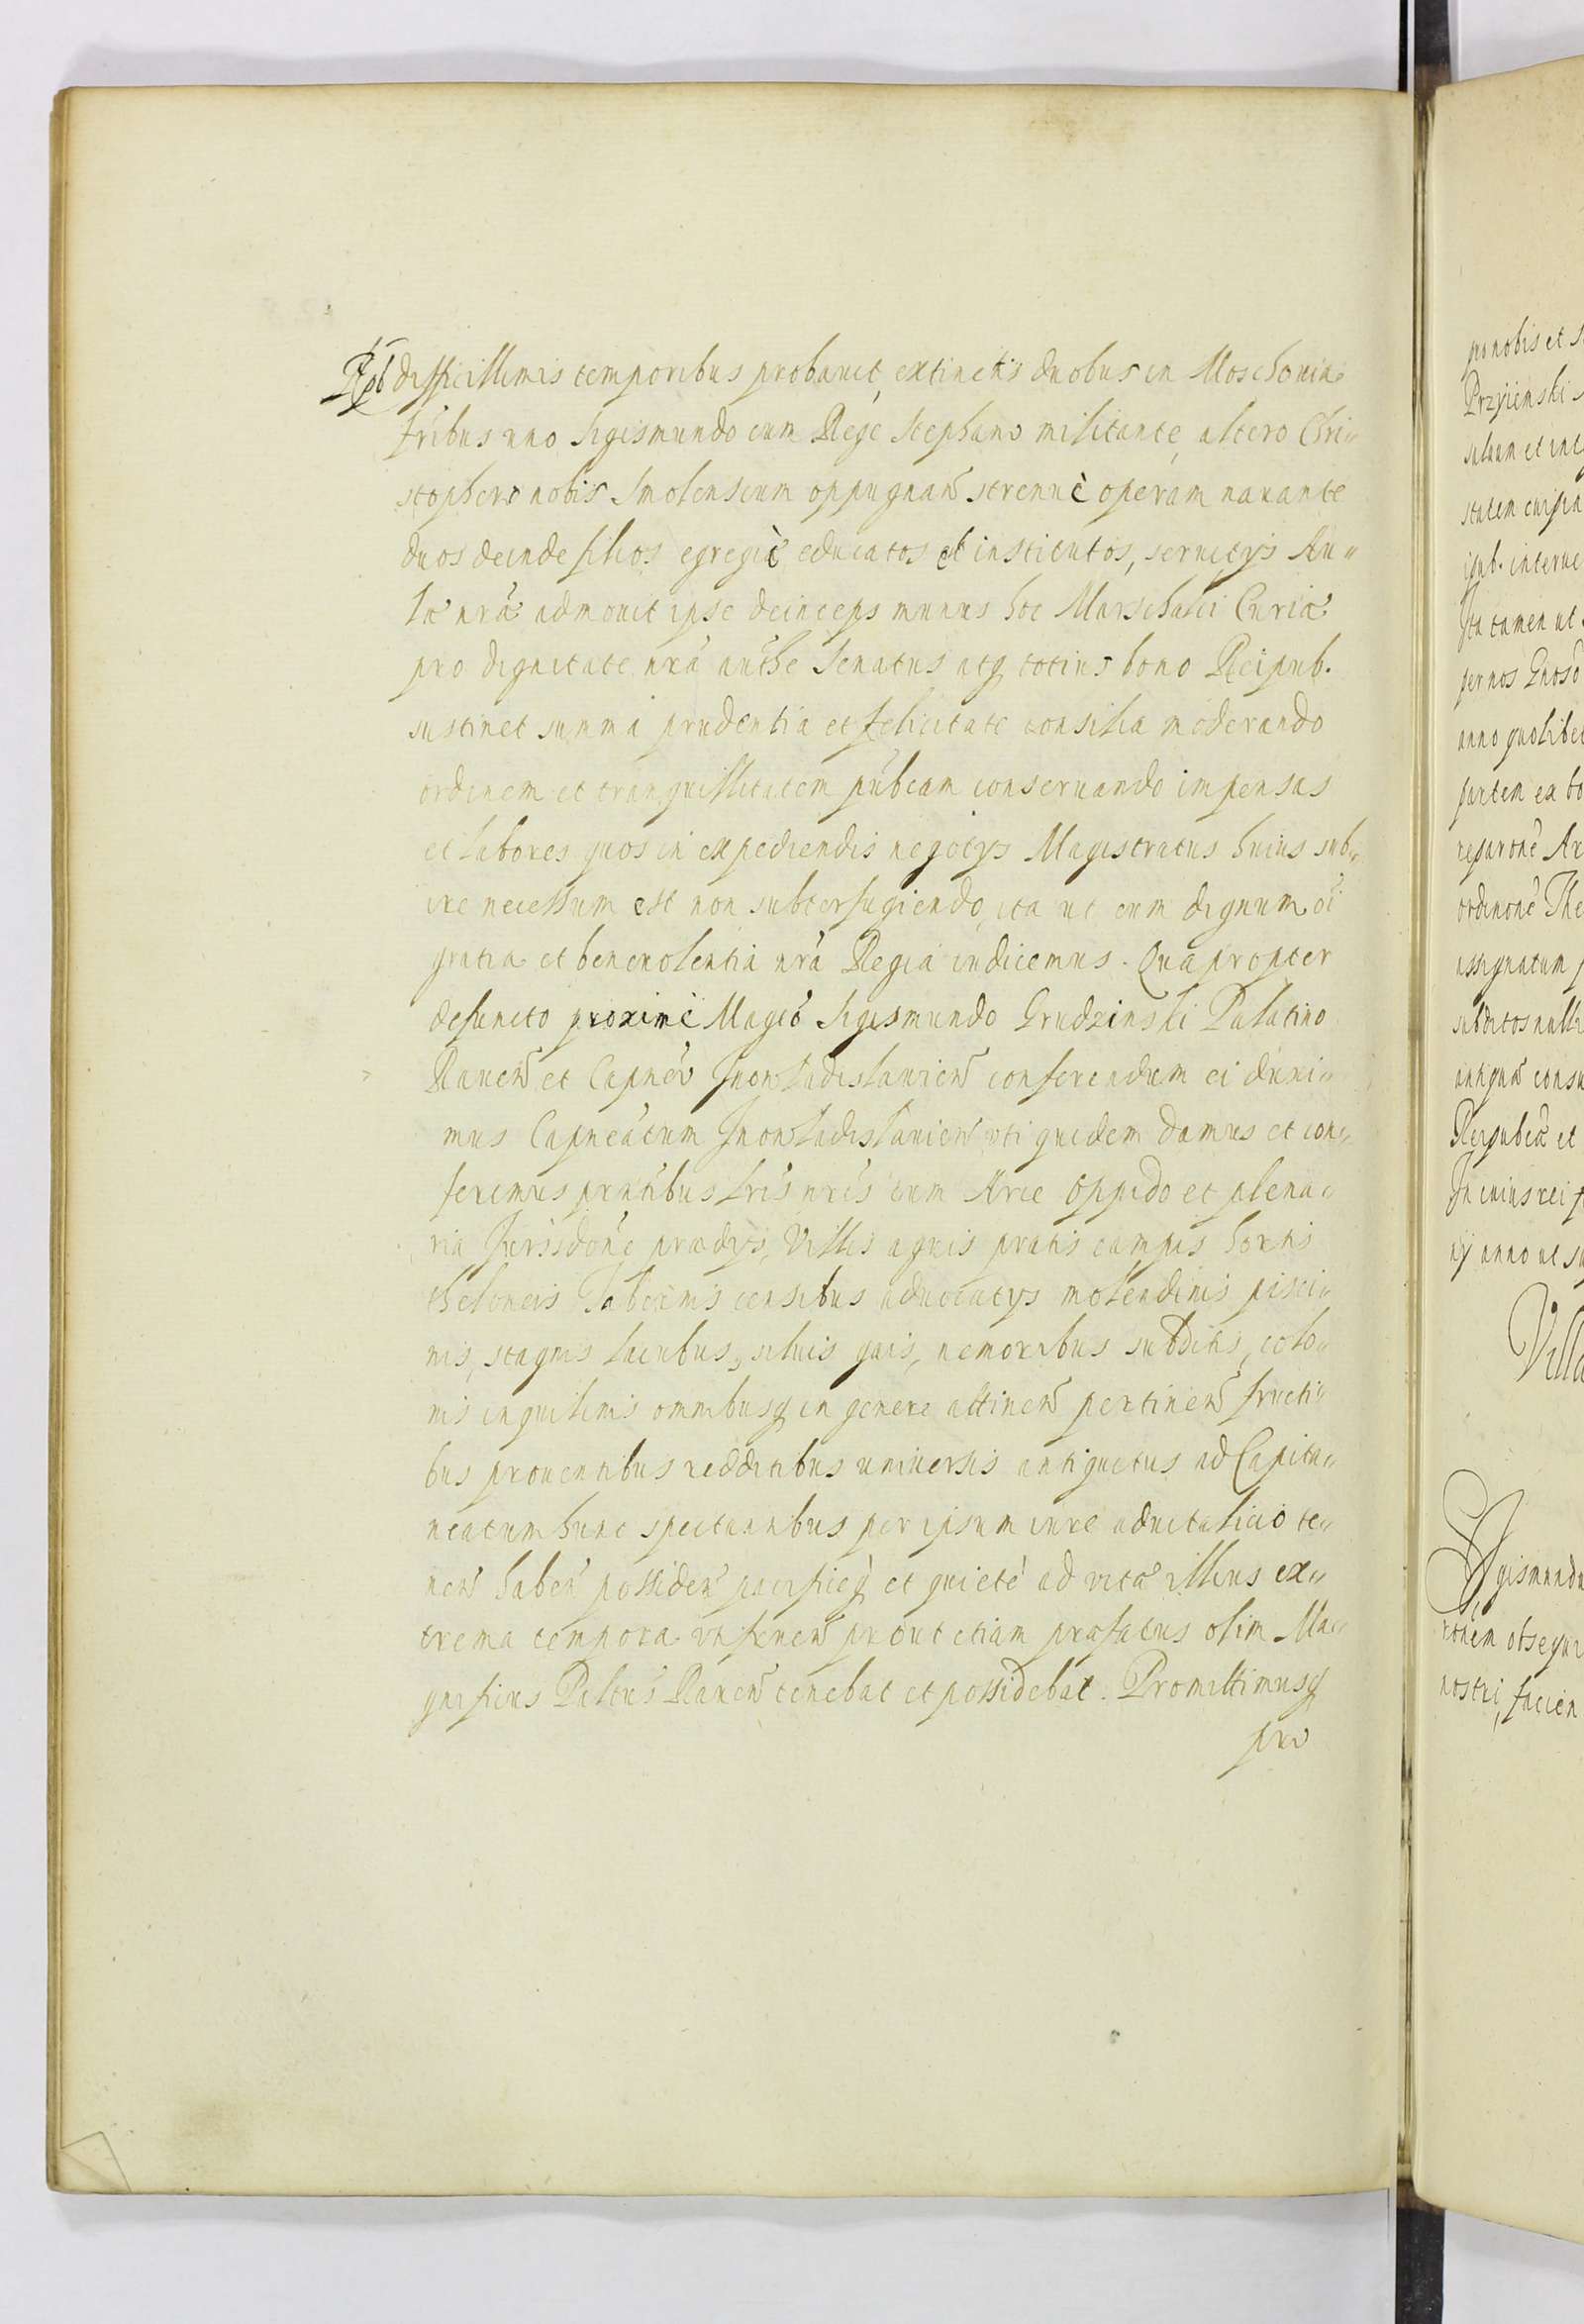 Rpb difficillimis temporibus probauit, extinctis duobus in Moschouia
fribus uno Sigismundo cum Rege Stephano militante, altero Chri„
stophero nobis Smolenscum oppugnan̄ strennuè operam nauante
duos deinde filios egregiè educatos et institutos, seruitys Au„
læ nr̃æ admouit ipse deinceps munus hoc Marschalci Curiæ
pro dignitate nr̃a auth̃e Senatus atq totius bono Reipub.
sustinet summa prudentia et felicitate consilia moderando
ordinem et tranquillitatem pub̃cam conseruando impensas
et labores quos in expediendis negotys Magistratus huius sub„
ire necessum est non subterfugiendo, ita ut eum dignum oĩ
gratia et beneuolentia nr̃a Regia iudicemus. Qua propter
defuncto proximè Magc̃o Sigismundo Grudzinski Palatino
Rauen̄ et Capnẽo Juonladislauien̄ conferendum ei duxi„
mus Capneãtum Juonladislauien̄ uti quidem damus et con„
ferimus prñtibus lr̃is nr̃is cum Arce Oppido et plena„
ria Jurisdõne prædys, Villis agris pratis campis hortis
theloneis Tabernis censibus aduocatys molendinis pisci„
nis, stagnis lacubus, siluis gais, nemoribus subditis, colo„
nis inquilinis omnibusq in genere attinen̄ pertinen̄ fructi„
bus prouentibus redditibus uniuersis antiquitus ad Capita„
neatum hunc spectantibus per ipsum iure aduitalicio te„
nen̄ haben̄ possiden̄ pacificq et quietè ad vitæ illius ex„
trema tempora utifruen̄ prout etiam præfatus olim Ma„
gnificus Paltñus Rauen̄ tenebat et possidebat. Promittimusq
pro
pro nobis et S
Przyiemski s
saluum et inte
statem cuipia
ipub. interue
Ita tamen ut
per nos Gnoso
anno quolibet
partem ex bo
reparone Ar
ordinone The
assignatum p
subditos nulli
antiqua consu
Reipubcæ et
In cuius rei f
ny anno ut su
Villa
Sigismundu
ronem obsequi
nostri, facien